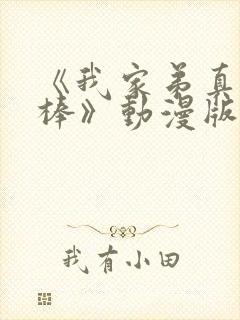 《我家弟真
棒》動漫版
我有小田